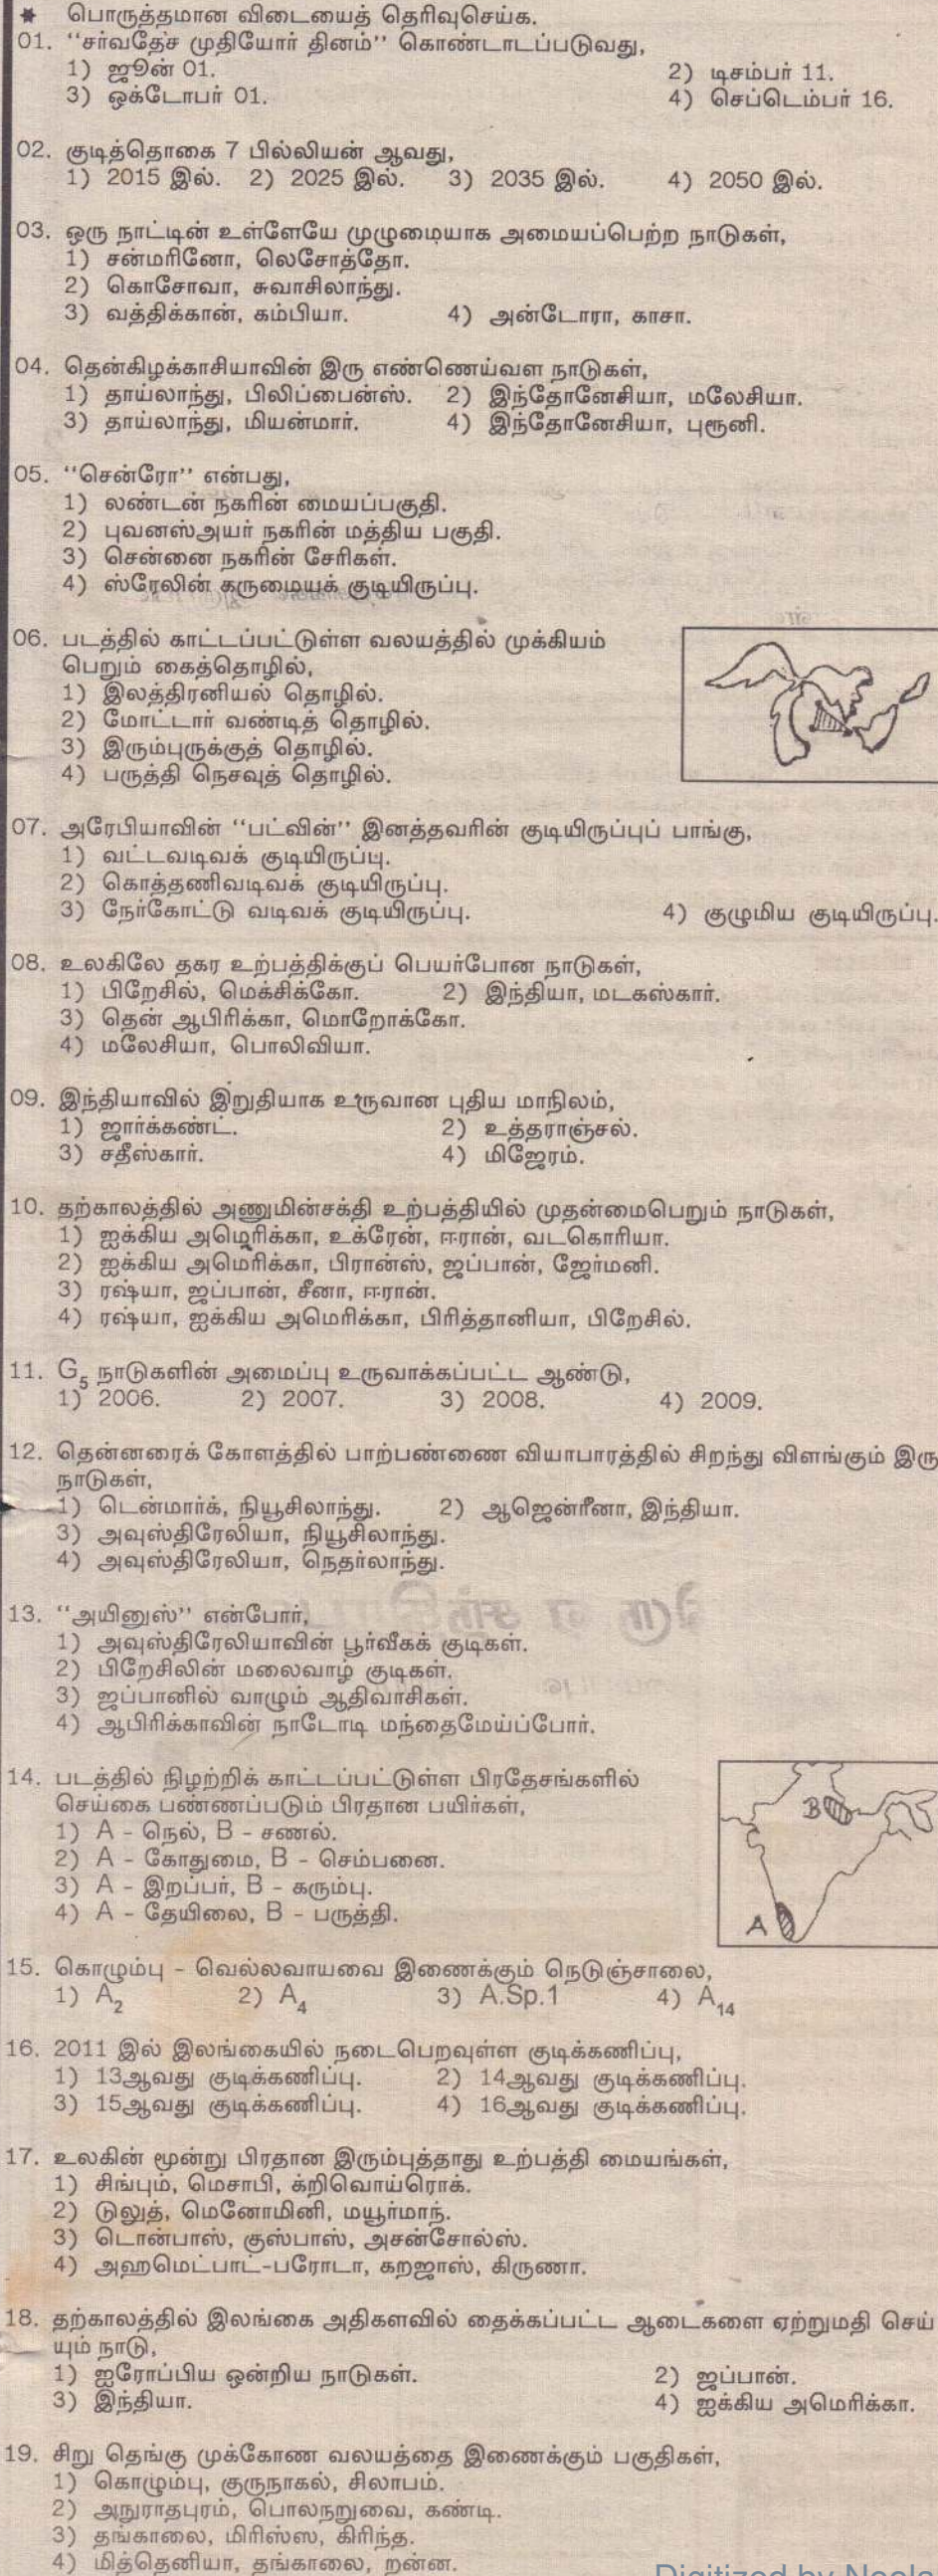 * பொருத்தமான விடையைத் தெரிவுசெய்க.
01. “சர்வதேச முதியோர் தினம்” கொண்டாடப்படுவது,
1) ஜூன் 01. 2) டிசம்பர் 11.
3) ஒக்டோபர் 01. 4) செப்டெம்பர் 16.
02. குடித்தொகை 7 பில்லியன் ஆவது,
1) 2015 இல். 2) 2025 இல். 3) 2035 இல். 4) 2050 இல்.
03. ஒரு நாட்டின் உள்ளேயே முழுமையாக அமையப்பெற்ற நாடுகள்,
1) சன்மரினோ, லெசோத்தோ.
2) கொசோவா, சுவாசிலாந்து.
3) வத்திக்கான், கம்பியா. 4) அன்டோரா, காசா.
04. தென்கிழக்காசியாவின் இரு எண்ணெய்வள நாடுகள்,
1) தாய்லாந்து, பிலிப்பைன்ஸ். 2) இந்தோனேசியா, மலேசியா.
3) தாய்லாந்து, மியன்மார். 4) இந்தோனேசியா, புரூனி.
05. “சென்ரோ” என்பது,
1) லண்டன் நகரின் மையப்பகுதி.
2) புவனஸ்அயர் நகரின் மத்திய பகுதி.
3) சென்னை நகரின் சேரிகள்.
4) ஸ்ரேலின் கருமையக் குடியிருப்பு.
06. படத்தில் காட்டப்பட்டுள்ள வலயத்தில் முக்கியம்
பெறும் கைத்தொழில்,
1) இலத்திரனியல் தொழில்.
2) மோட்டார் வண்டித் தொழில்.
3) இரும்புருக்குத் தொழில்.
4) பருத்தி நெசவுத் தொழில்.
07. அரேபியாவின் “பட்வின்” இனத்தவரின் குடியிருப்புப் பாங்கு,
1) வட்டவடிவக் குடியிருப்பு.
2) கொத்தணிவடிவக் குடியிருப்பு.
3) நேர்கோட்டு வடிவக் குடியிருப்பு. 4) குழுமிய குடியிருப்பு.
08. உலகிலே தகர உற்பத்திக்குப் பெயர்போன நாடுகள்,
1) பிறேசில், மெக்சிக்கோ. 2) இந்தியா, மடகஸ்கார்.
3) தென் ஆபிரிக்கா, மொறோக்கோ.
4) மலேசியா, பொலிவியா.
09. இந்தியாவில் இறுதியாக உருவான புதிய மாநிலம்,
1) ஜார்க்கண்ட். 2) உத்தராஞ்சல்.
3) சதீஸ்கார். 4) மிஜேரம்.
10. தற்காலத்தில் அணுமின்சக்தி உற்பத்தியில் முதன்மைபெறும் நாடுகள்,
1) ஐக்கிய அமெரிக்கா, உக்ரேன், ஈரான், வடகொரியா.
2) ஐக்கிய அமெரிக்கா, பிரான்ஸ், ஜப்பான், ஜேர்மனி.
3) ரஷ்யா, ஜப்பான், சீனா, ஈரான்.
4) ரஷ்யா, ஐக்கிய அமெரிக்கா, பிரித்தானியா, பிறேசில்.
11. G5 நாடுகளின் அமைப்பு உருவாக்கப்பட்ட ஆண்டு,
1) 2006. 2) 2007. 3) 2008. 4) 2009.
12. தென்னரைக் கோளத்தில் பாற்பண்ணை வியாபாரத்தில் சிறந்து விளங்கும் இரு
நாடுகள்,
1) டென்மார்க், நியூசிலாந்து. 2) ஆஜென்ரீனா, இந்தியா.
3) அவுஸ்திரேலியா, நியூசிலாந்து.
4) அவுஸ்திரேலியா, நெதர்லாந்து.
13. “அயினுஸ்” என்போர்,
1) அவுஸ்திரேலியாவின் பூர்வீகக் குடிகள்.
2) பிறேசிலின் மலைவாழ் குடிகள்.
3) ஜப்பானில் வாழும் ஆதிவாசிகள்.
4) ஆபிரிக்காவின் நாடோடி மந்தைமேய்ப்போர்.
14. படத்தில் நிழற்றிக் காட்டப்பட்டுள்ள பிரதேசங்களில்
செய்கை பண்ணப்படும் பிரதான பயிர்கள்,
1) A – நெல், B – சணல்.
2) A – கோதுமை, B – செம்பனை.
3) A – இறப்பர், B – கரும்பு.
4) A – தேயிலை, B – பருத்தி.
B
A
15. கொழும்பு – வெல்லவாயவை இணைக்கும் நெடுஞ்சாலை,
1) A2 2) A4 3) A.Sp.1 4) A14
16. 2011 இல் இலங்கையில் நடைபெறவுள்ள குடிக்கணிப்பு,
1) 13ஆவது குடிக்கணிப்பு. 2) 14ஆவது குடிக்கணிப்பு.
3) 15ஆவது குடிக்கணிப்பு. 4) 16ஆவது குடிக்கணிப்பு.
17. உலகின் மூன்று பிரதான இரும்புத்தாது உற்பத்தி மையங்கள்,
1) சிங்பும், மெசாபி, க்றிவொய்ரொக்.
2) டுலுத், மெனோமினி, மயூர்மாந்.
3) டொன்பாஸ், குஸ்பாஸ், அசன்சோல்ஸ்.
4) அஹமெட்பாட்-பரோடா, கறஜாஸ், கிருணா.
18. தற்காலத்தில் இலங்கை அதிகளவில் தைக்கப்பட்ட ஆடைகளை ஏற்றுமதி செய்
யும் நாடு,
1) ஐரோப்பிய ஒன்றிய நாடுகள். 2) ஜப்பான்.
3) இந்தியா. 4) ஐக்கிய அமெரிக்கா.
19. சிறு தெங்கு முக்கோண வலயத்தை இணைக்கும் பகுதிகள்,
1) கொழும்பு, குருநாகல், சிலாபம்.
2) அநுராதபுரம், பொலநறுவை, கண்டி.
3) தங்காலை, மிரிஸ்ஸ, கிரிந்த.
4) மித்தெனியா, தங்காலை, றன்ன.
Digitized by